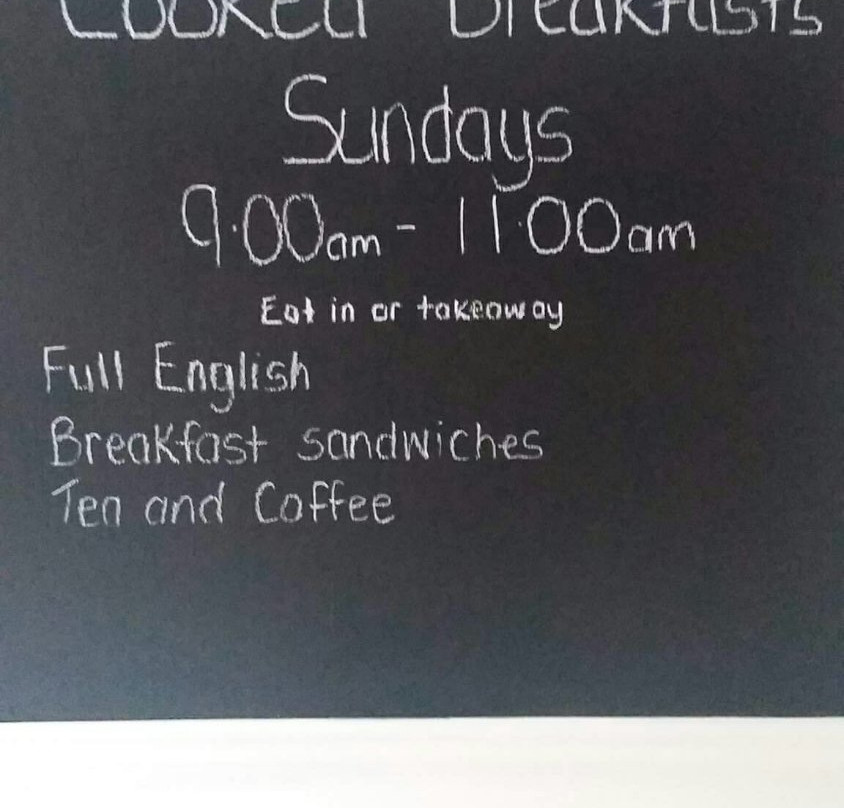 Cooked Breakfasts
Sundays
9.00am - 11.00am
Eat in or takeaway
Full English
Breakfast sandwiches
Tea and Coffee